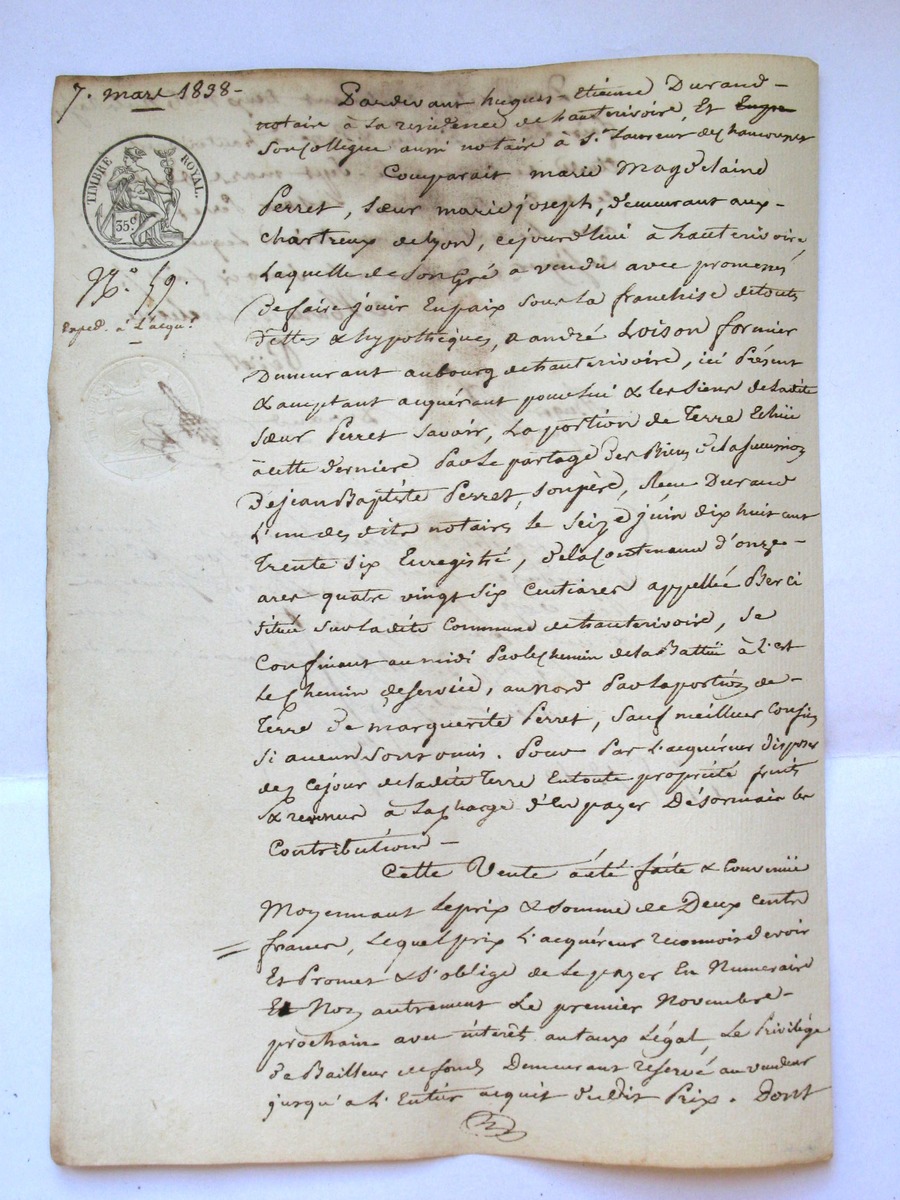 7. mars 1838-
TIMBRE ROYAL.
35 c.
N.° 59.
Exped. à L'acqu.r
Pardevant hugues-Etienne Durand-
notaire à La résidence de hauterivoire, Et
Son Collègue aussi notaire à S.t Laurent de chamousset
Comparait marie Magdelaine
Perret, Sœur marie joseph, demeurant aux-
chartreux de Lyon, cejourd'hui à hauterivoire,
Laquelle de Son Gré a vendu avec promesse
De faire jouir En paix Sous La franchise de toutes
Dettes & hypothèques, a andré Loison fermier
Demeurant au bourg de hauterivoire, ici Présent
& acceptant acquérant pour lui & les Siens de Ladite
Sœur Perret Savoir, La portion de Terre Echüe
à cette dernière Par Le partage Des Biens De la Succession
De jean Baptiste Perret, Son père, Reçu Durand
L'un des dits notaires le Seize juin dix huit cent
Trente Six Enregistré, De la Contenance d'onze-
ares quatre vingt Six Centiares appellée Berci
Située Sur La dite Commune de hauterivoire, Se
Confinant au midi Par le Chemin de la Battüe à L'est
Le Chemin de Service, au Nord Par La portion de-
Terre De marguerite Perret, Sauf meilleurs Confins
Si aucuns Sont omis. Pour Par L'acquéreur disposer
dez Cejour de la dite Terre En toute propriété fruits
& revenus à La charge d'En payer Désormais les
Contributions-
Cette Vente a été faite & Convenüe
Moyennant Le prix & Somme de Deux cents
francs, Lequel prix L'acquéreur reconnois devoir
Et Promet & S'oblige de Le payer En Numeraire
Et Non autrement Le premier Novembre-
prochain avec intérêts au taux Légal, Le Privilège
De Bailleur de fonds Demeurant réservé au vendeur
jusqu'à L'Entier acquit dudit Prix. Dont